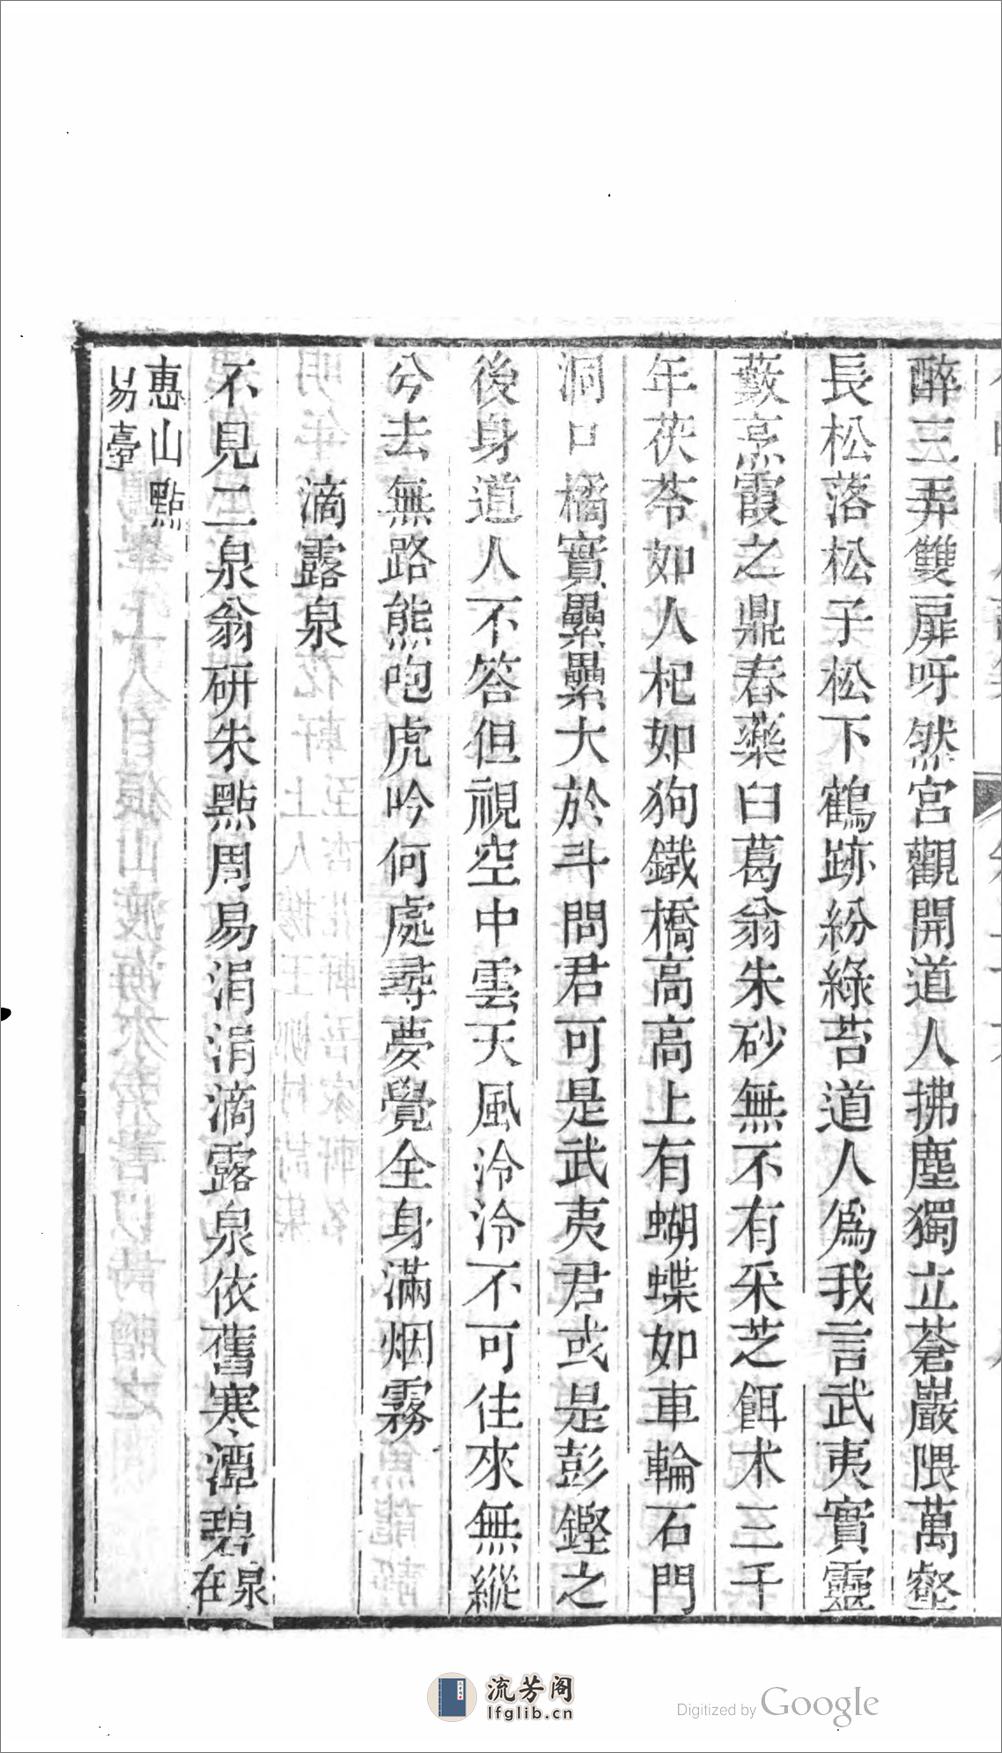 醉三弄雙扉呀然宮觀開道人拂塵獨立蒼巖隈萬壑
長松落松子松下鶴跡紛綠苔道人爲我言武夷實靈
藪烹霞之鼎舂藥臼葛翁朱砂無不有采芝餌朮三千
年茯苓如人杞如狗鐵橋高高上有蝴蝶如車輪石門
洞口橘實纍纍大於斗問君可是武夷君或是彭鏗之
後身道人不答但視空中雲天風泠泠不可住來無縱
兮去無路熊咆虎吟何處尋夢覺全身滿烟霧
滴露泉
不見二泉翁研朱點周易涓涓滴露泉依舊寒潭碧泉在
惠山點
易臺
流芳阁
lfglib.cn
Digitized by Google